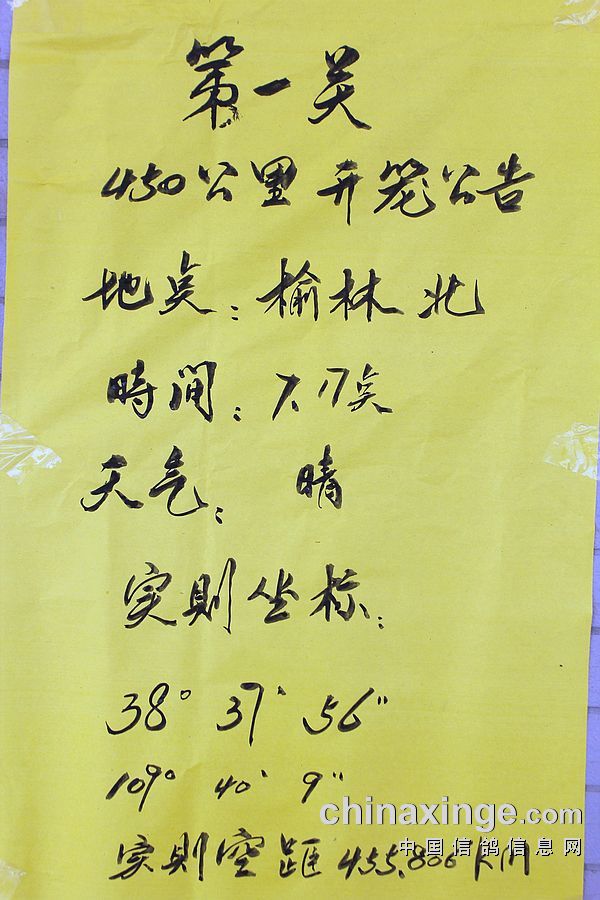 第一关
450公里 开笼公告
地点：榆林北
時间：7.17点
天气：晴
实则坐标：
38° 37′ 56″
109° 40′ 9″
chinaxinge.com
中国信鸽信息网
实则空距 455.806 KM